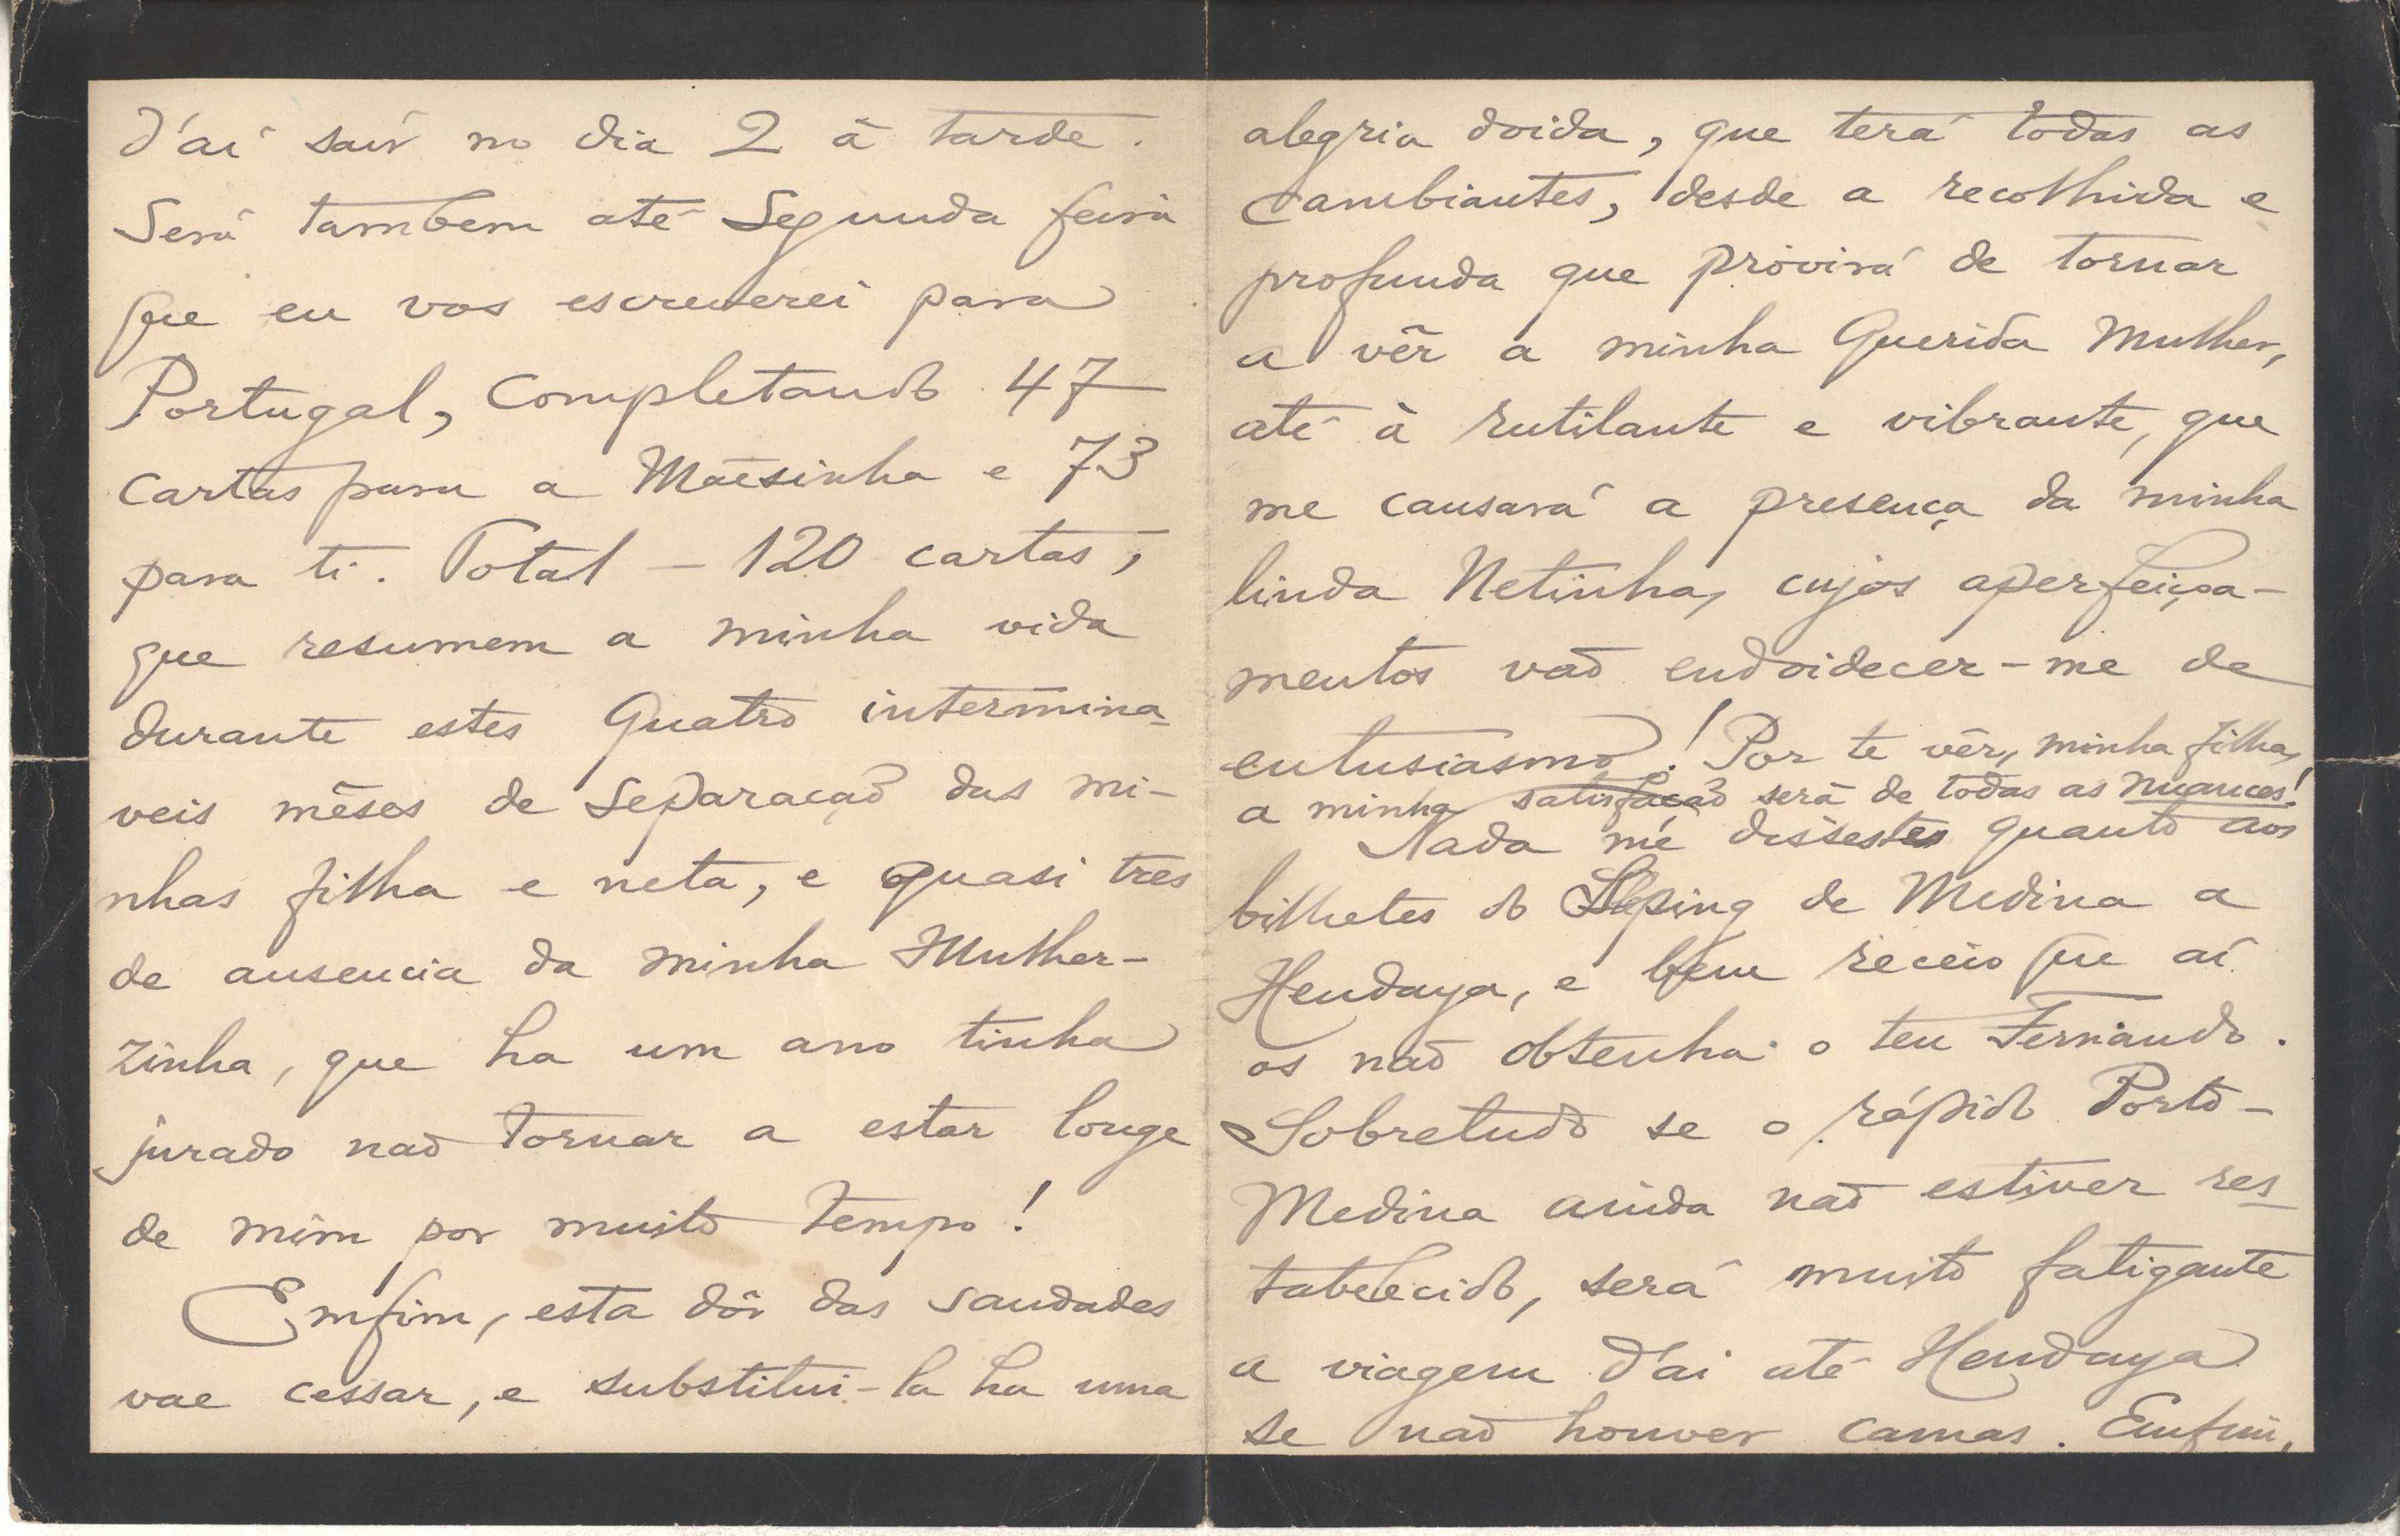 d'aí saír no dia 2 á tarde.
Será tambem até Segunda feira
que eu vos escreverei para
Portugal, completando 47
cartas para a Mãesinha e 73
para ti. Total — 120 cartas,
que resumem a minha vida
durante estes quatro intermina-
veis mêses de separação das mi-
nhas filha e neta, e quasi tres
de ausencia da minha Mulher-
zinha, que ha um ano tinha
jurado não tornar a estar longe
de mim por muito tempo!
Emfim, esta dôr das saudades
vae cessar, e substitui-la ha uma
alegria doida, que terá todas as
cambiantes, desde a recolhida e
profunda que provirá de tornar
a vêr a minha Querida Mulher,
até à rutilante e vibrante, que
me causará a presença da minha
linda Netinha, cujos aperfeiçoa-
mentos vão endoidecer-me de
entusiasmo! Por te vêr, minha filha,
a minha satisfação será de todas as nuances!
Nada me dissestes quanto aos
bilhetes do Sleping de Medina a
Hendaya, e bem receio que aí
os não obtenha o teu Fernando.
Sobretudo se o rápido Porto-
Medina ainda não estiver res-
tabelecido, será muito fatigante
a viagem d'aí até Hendaya
se não houver camas. Emfim,